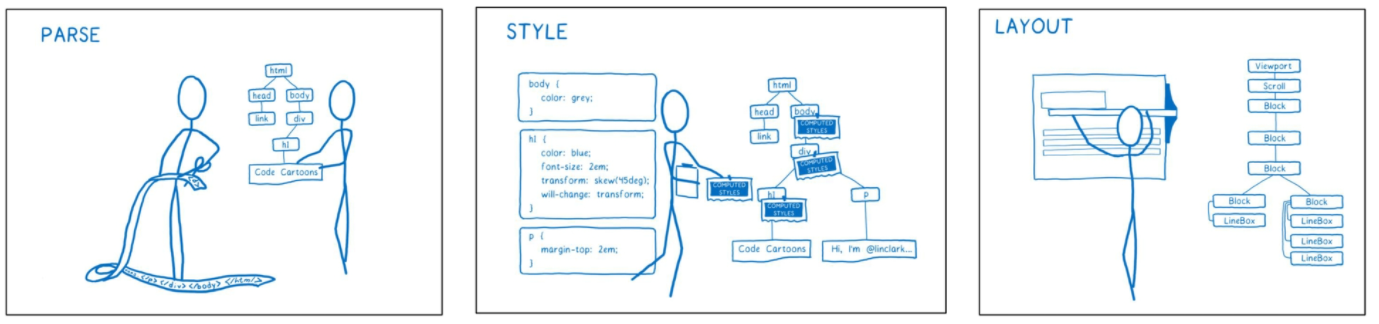 PARSE
html
head body
link div
h1
Code Cartoons
</p></div></body></html>
STYLE
body {
color: grey;
}
h1 {
color: blue;
font-size: 2em;
transform: skew(45deg);
will-change: transform;
}
p {
margin-top: 2em;
}
html
head body
COMPUTED
STYLES
link
div
COMPUTED
STYLES
COMPUTED
STYLES
h1 p
COMPUTED
STYLES
Code Cartoons Hi, I'm @linclark...
LAYOUT
Viewport
Scroll
Block
Block
Block
Block Block
LineBox LineBox
LineBox
LineBox